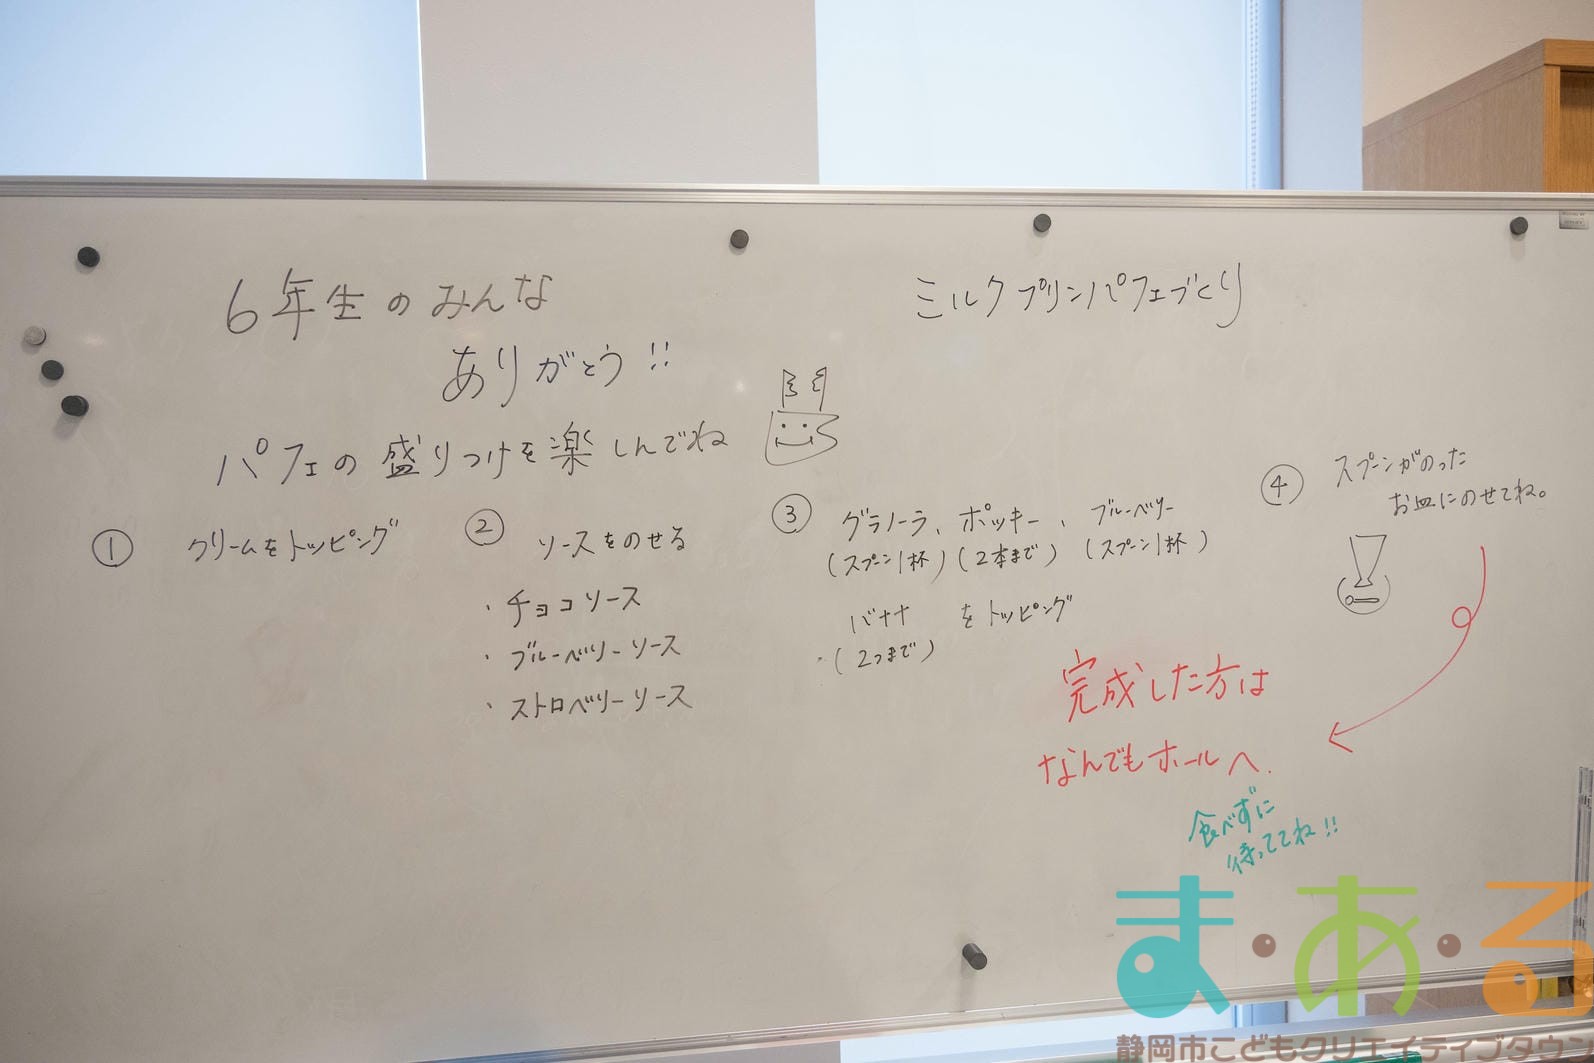 6年生のみんな
ありがとう!!
パフェの盛りつけを楽しんでね
ミルクプリンパフェづくり
① クリームをトッピング
② ソースをのせる
・チョコソース
・ブルーベリーソース
・ストロベリーソース
③ グラノーラ、ポッキー、ブルーベリー
(スプーン1杯)(2本まで)(スプーン1杯)
バナナ をトッピング
(2つまで)
④ スプーンがのった
お皿にのせてね。
完成した方は
なんでもホールへ.
食べずに
待っててね!!
ま・あ・る
静岡市こどもクリエイティブタウン